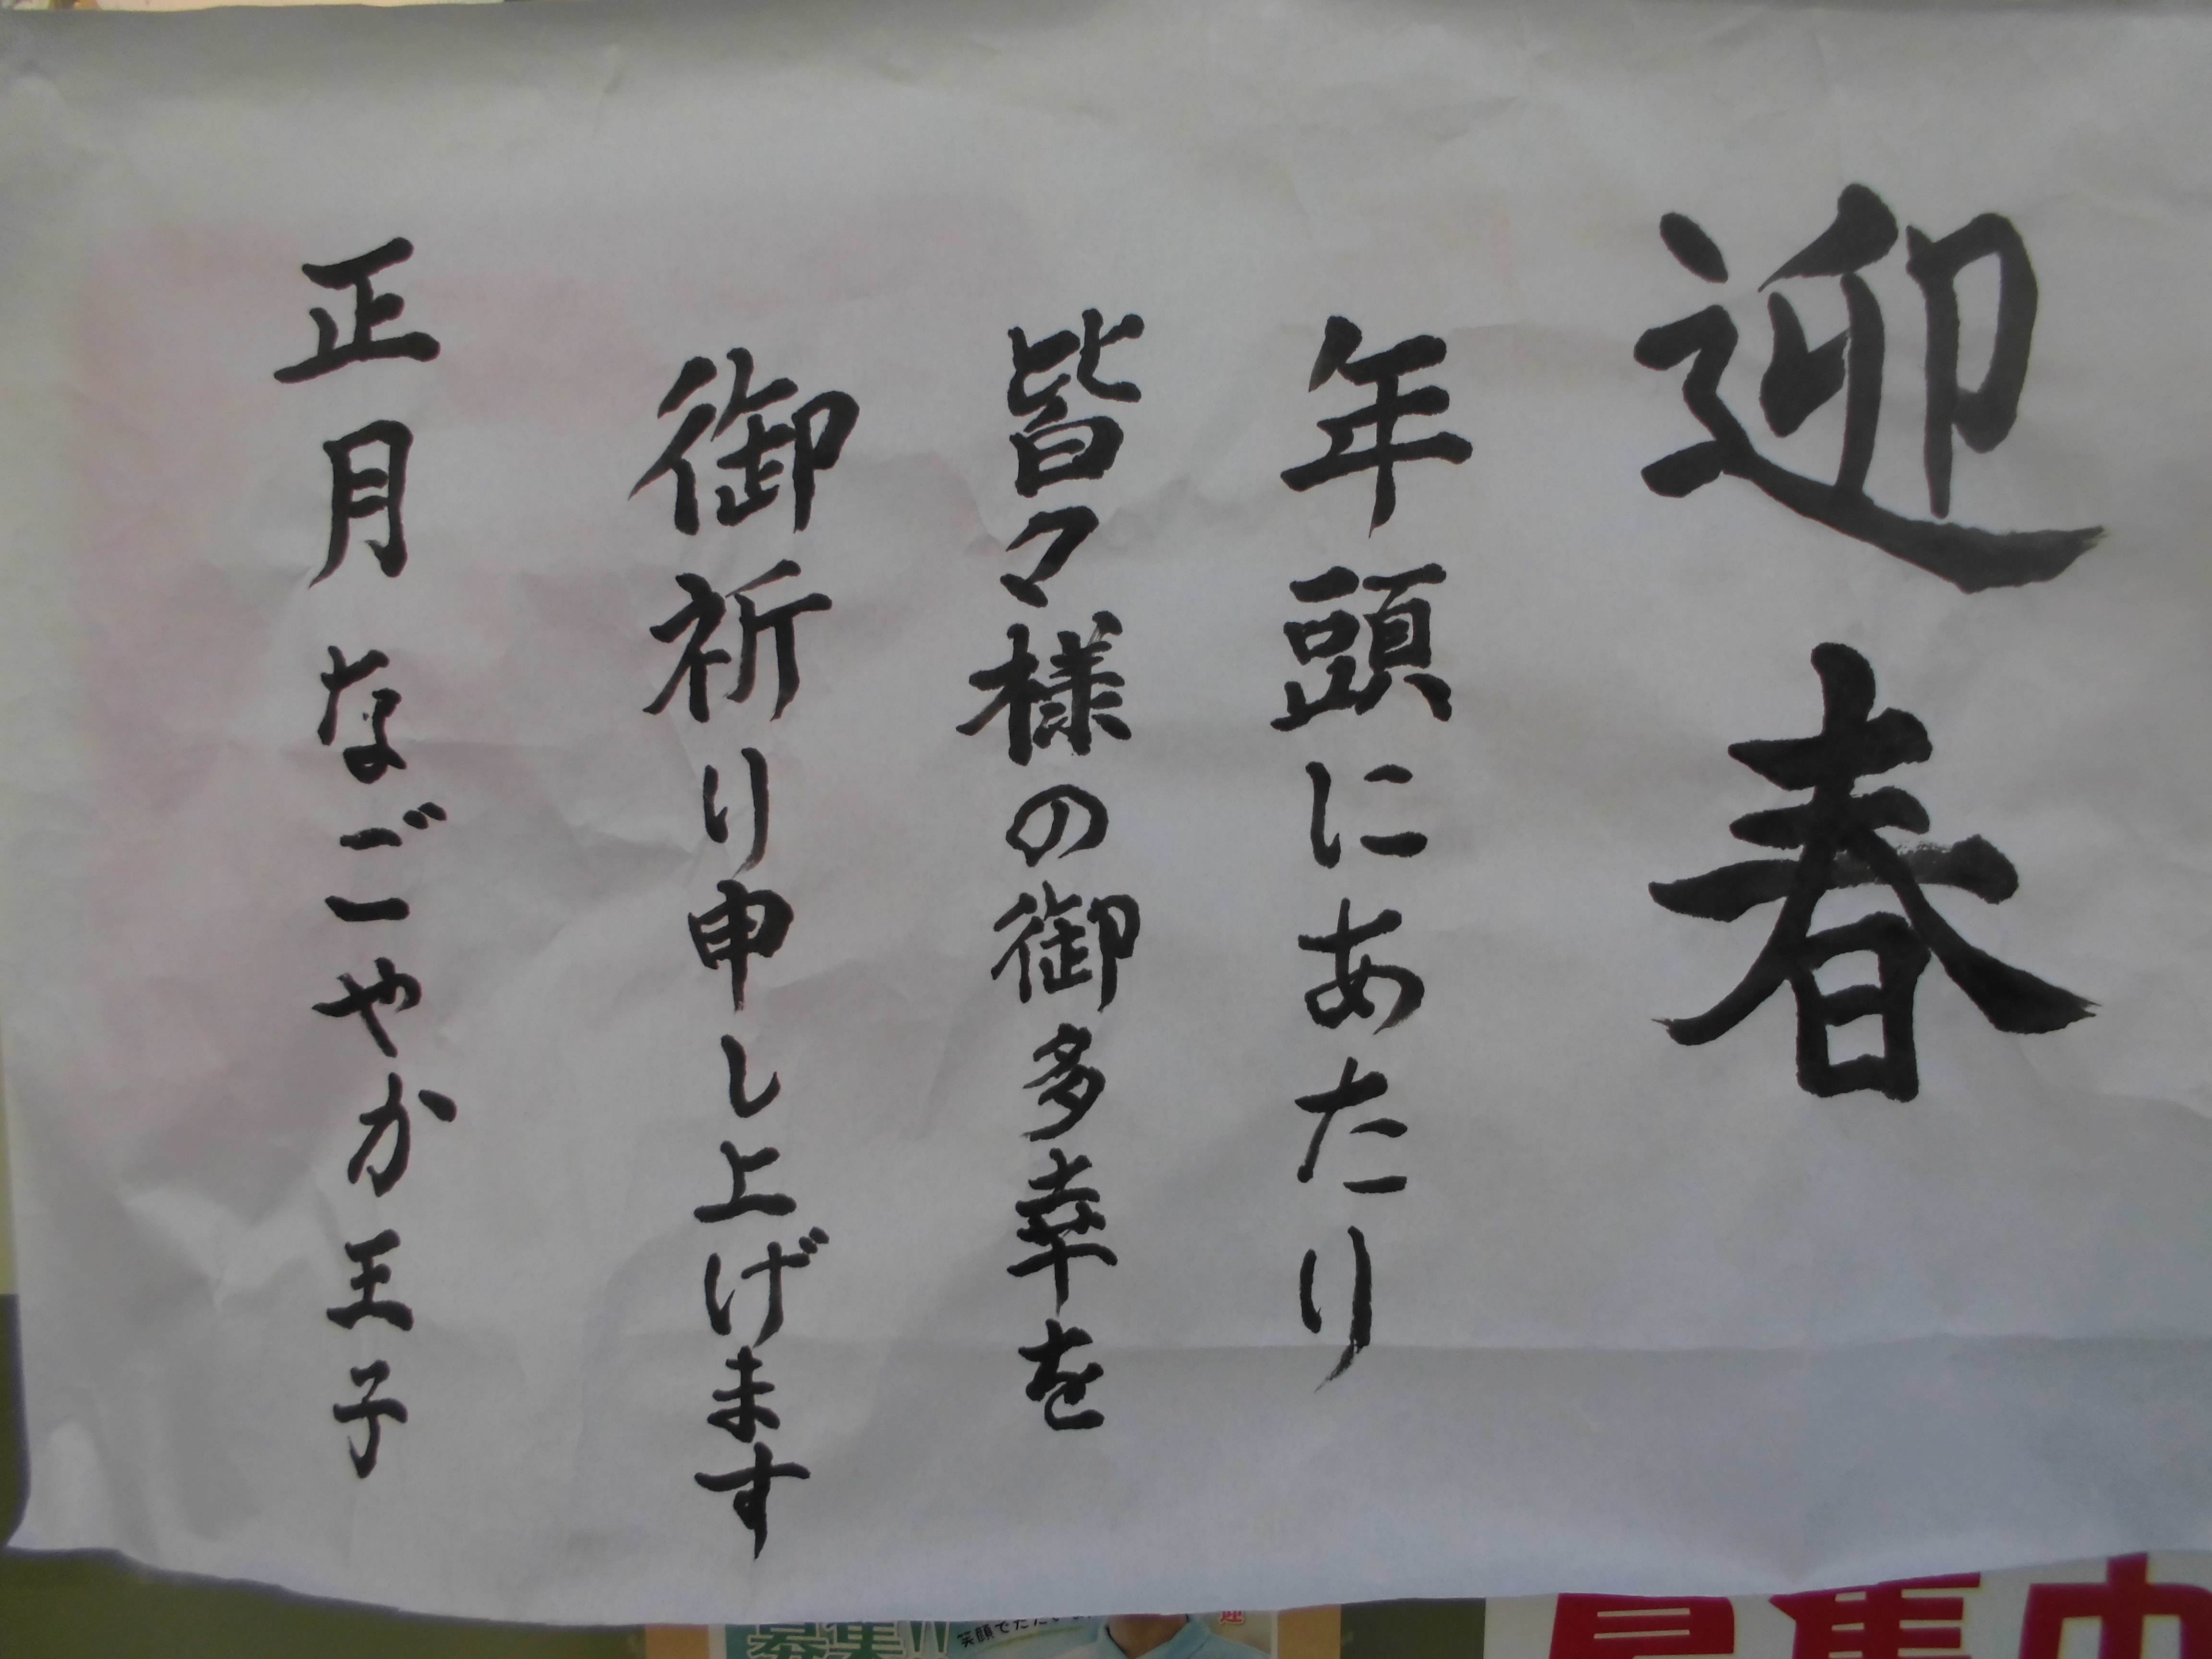 迎春
年頭にあたり
皆々様の御多幸を
御祈り申し上げます
正月 なごやか王子
募集!!